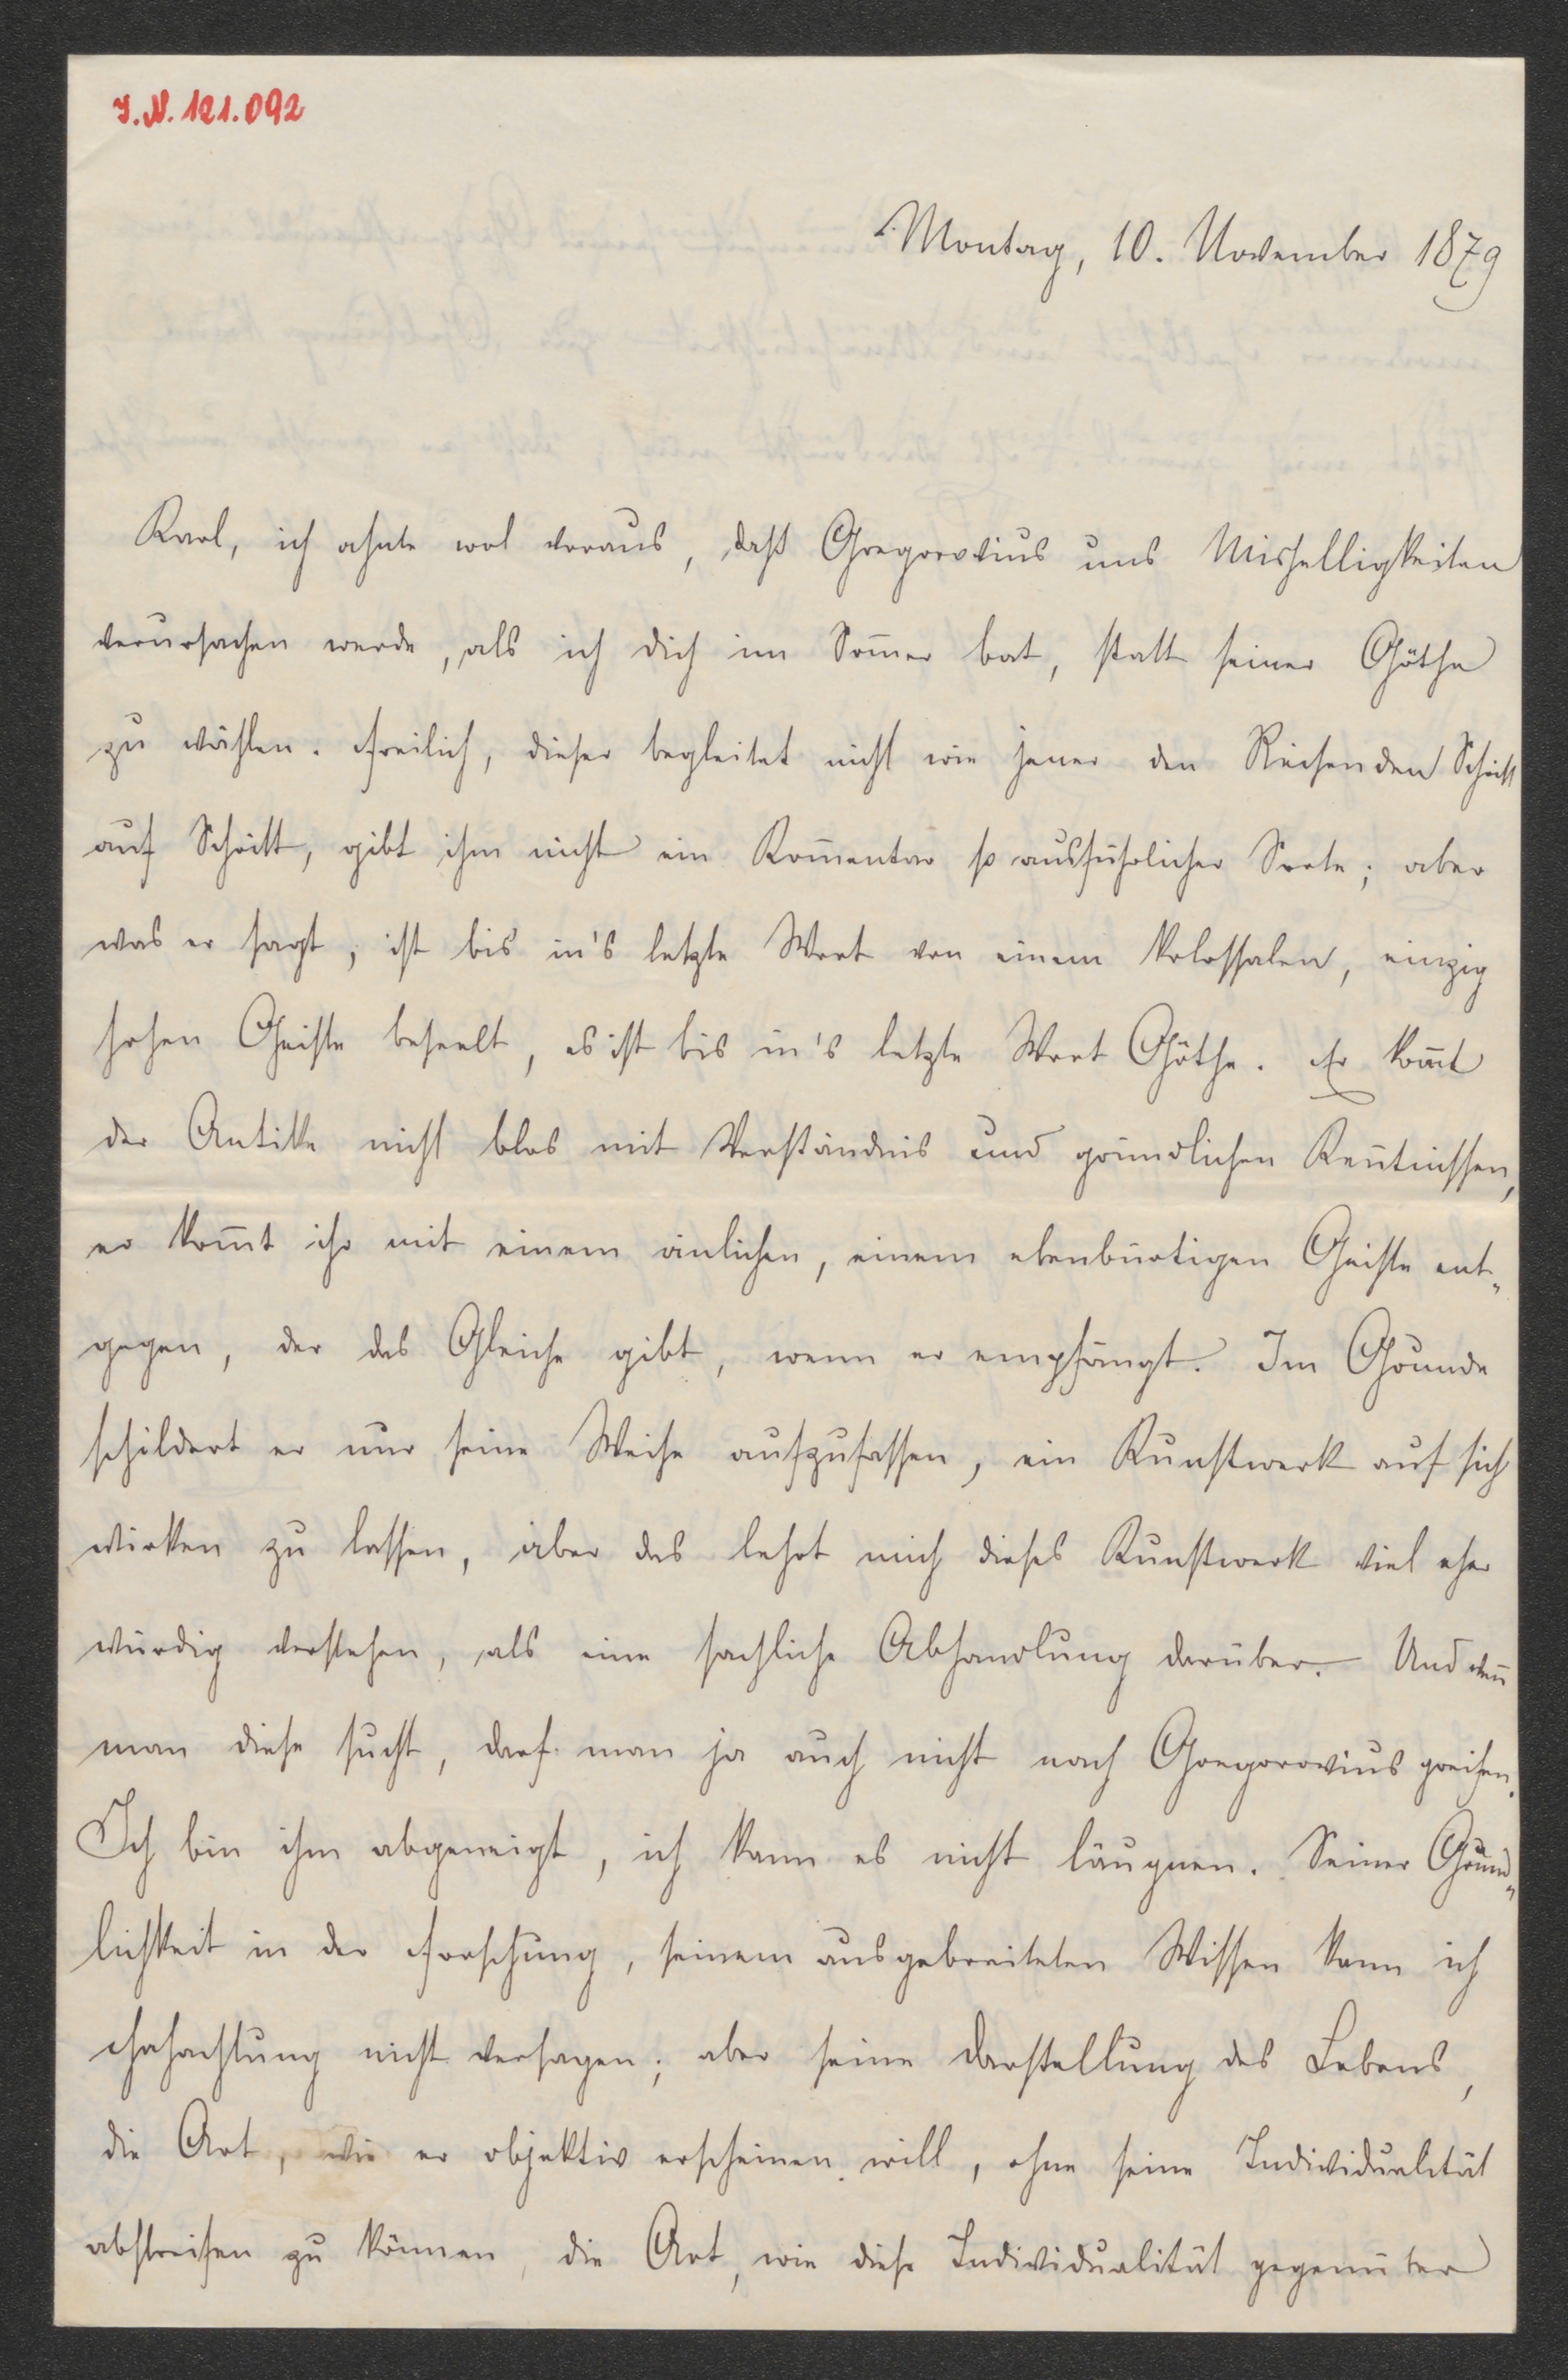 I.N. 121.092
Montag, 10. November 1879
Karl, ich ahnte wol voraus, daß Gregorovius uns Mishelligkeiten
verursachen werde, als ich dich im Som̄er bat, statt seiner Göthe
zu wählen. Freilich, dieser begleitet nicht wie jener den Reisenden Schritt
auf Schritt, gibt ihm nicht ein Kom̄entar so ausführlicher Sorte; aber
was er sagt, ist bis in's letzte Wort von einem kolossalen, einzig
hohen Geiste beseelt, es ist bis in's letzte Wort Göthe. Er kom̄t
der Antike nicht blos mit Verständnis und gründlichen Ken̄tnissen,
er kom̄t ihr mit einem änlichen, einem ebenbürtigen Geiste ent„
gegen, der das Gleiche gibt, wenn er empfängt. Im Grunde
schildert er nur seine Weise aufzufassen, ein Kunstwerk auf sich
wirken zu lassen, aber das lehrt mich dieses Kunstwerk viel eher
würdig verstehen, als eine sachliche Abhandlung darüber. Und wen̄
man diese sucht, darf man ja auch nicht nach Gregorovius greifen.
Ich bin ihm abgeneigt, ich kann es nicht läugnen. Seiner Gründ„
lichkeit in der Forschung, seinem ausgebreiteten Wissen kann ich
Hochachtung nicht versagen; aber seine Darstellung des Lebens,
die Art, wie er objektiv erscheinen will, ohne seine Individualität
abstreifen zu können, die Art, wie diese Individualität gegenüber